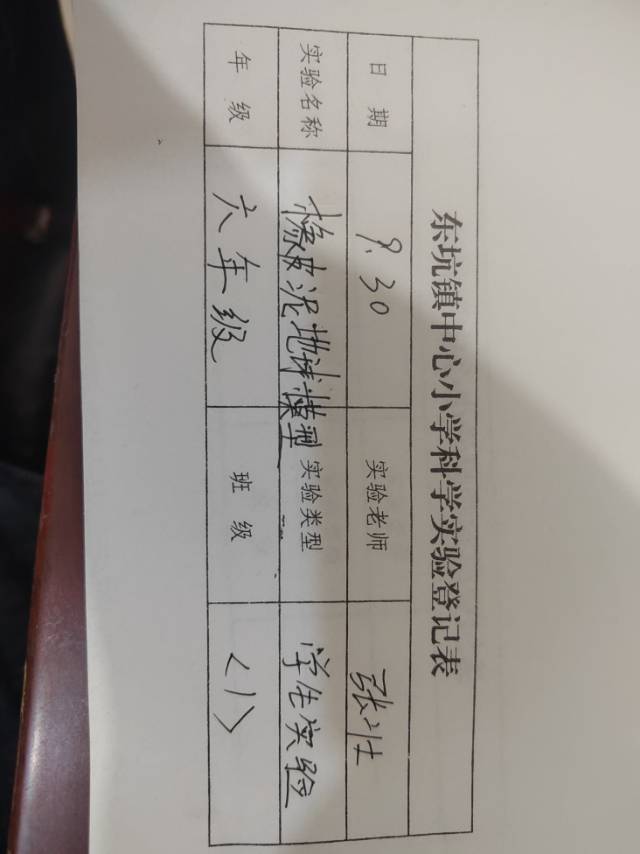 东坑镇中心小学科学实验登记表
日 期 9.30 实验老师 张壮
实验名称 橡皮泥地球模型 实验类型 学生实验
年 级 六年级 班 级 <1>